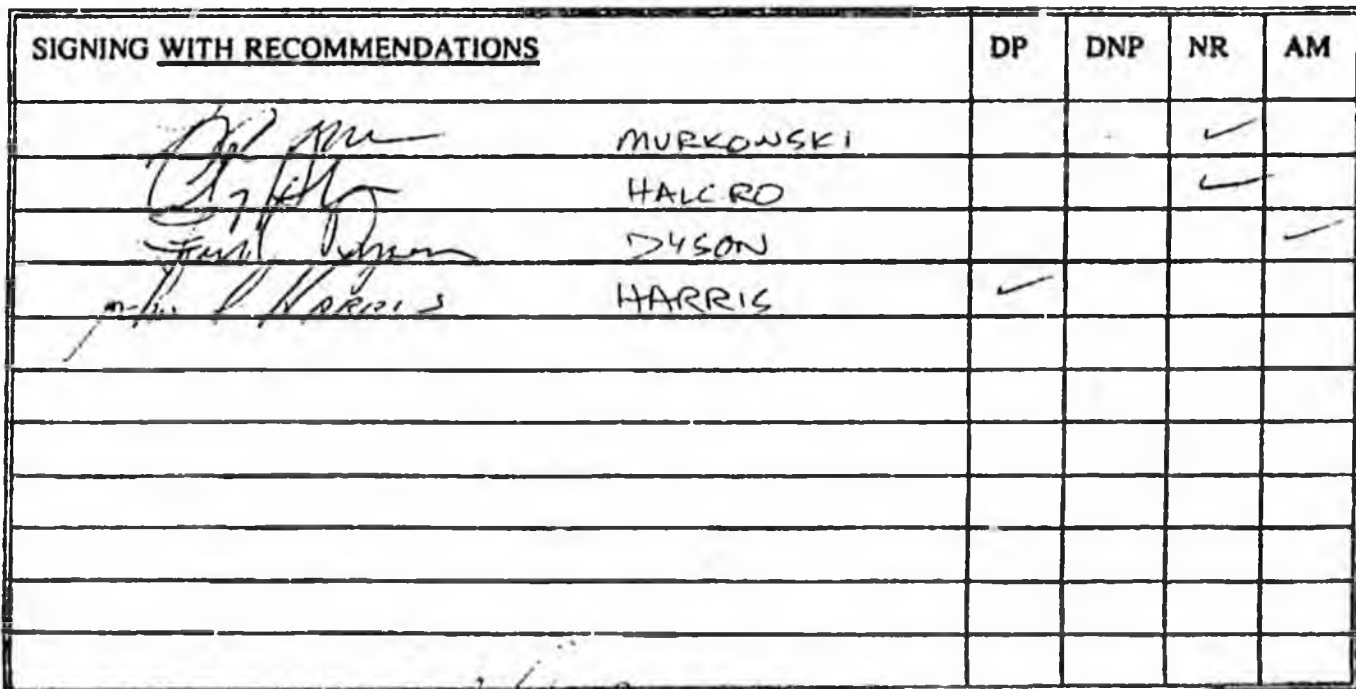 SIGNING WITH RECOMMENDATIONS DP DNP NR AM
MURKOWSKI ✓
HALCRO ✓
DYSON ✓
HARRIS HARRIS ✓